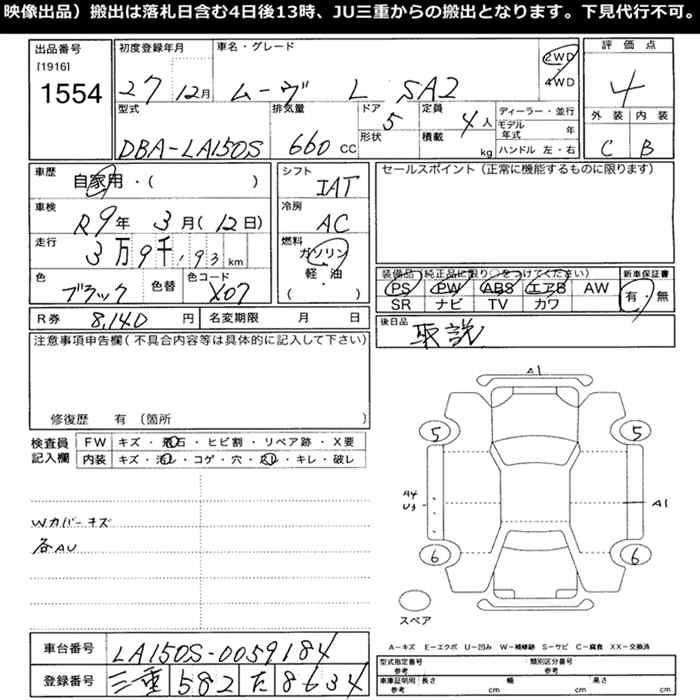 映像出品）搬出は落札日含む4日後13時、JU三重からの搬出となります。下見代行不可。
出品番号
[1916]
1554
初度登録年月
27 12月
車名・グレード
ムーヴ L SA2
2WD
4WD
評価点
4
外装 内装
C B
型式
DBA-LA150S
排気量
660 cc
ドア 5
形状
定員 4人
積載 kg
ディーラー・並行
モデル年式 年
ハンドル 左・右
車歴
自家用・( )
車検
R9年 3月(12日)
走行
3万9千,193km
色
ブラック
色替
色コード
X07
シフト
IAT
冷房
AC
燃料
ガソリン
軽・油
( ・ )
セールスポイント（正常に機能するものに限ります）
装備品（純正品に限り○をつけてください）
PS PW ABS エアB AW
SR ナビ TV カワ
新車保証書
有・無
R券 8,140 円
名変期限 月 日
後日品
取説
注意事項申告欄（不具合内容等は具体的に記入して下さい）
修復歴 有 〔箇所 〕
検査員記入欄
FW キズ・飛石・ヒビ割・リペア跡・X要
内装 キズ・汚レ・コゲ・穴・スレ・キレ・破レ
Wカバーキズ
各AU
A1
5 5
A4
U3
A1
6 6
スペア
A－キズ E－エクボ U－凹み W－補修跡 S－サビ C－腐食 XX－交換済
車台番号 LA150S-0059184
登録番号 三重 582 た 8634
型式指定番号
参考
類別区分番号
参考
車庫証明用
参考
長さ cm 幅 cm 高さ cm